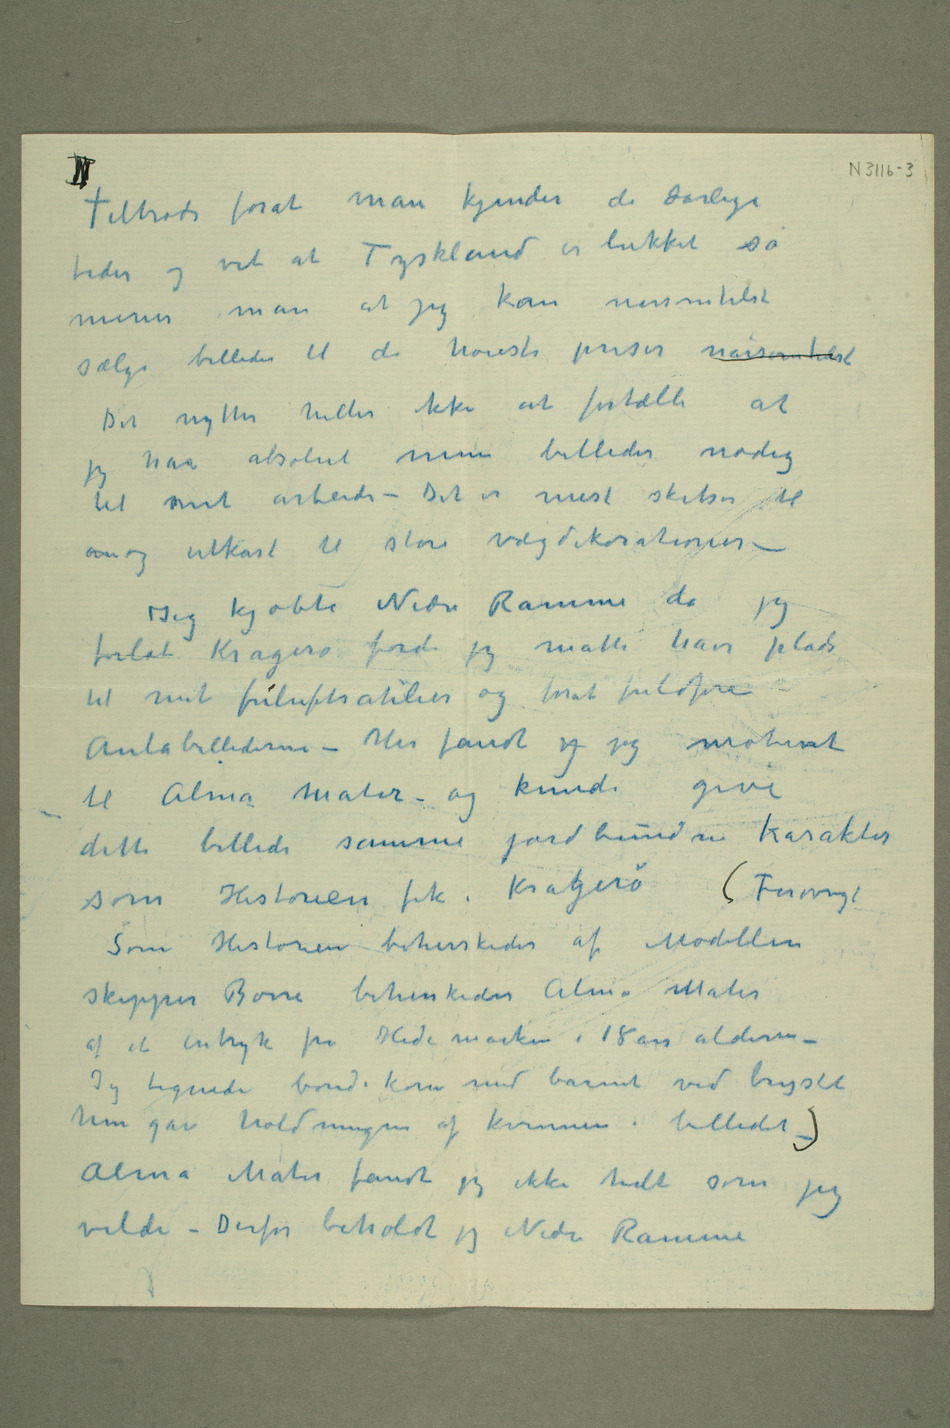 N3116-3
N
Tiltrods forat man kjender de dårlige
tider og vet at Tyskland er lukket så
mener man at jeg kan nårsomhelst
sælge billeder til de høieste priser nårsomhelst
Det nytter heller ikke at fortælle at
jeg har absolut mine billeder nødig
til mit arbeide – Det er mest skitser til
og utkast til store vægdekorationer –
Jeg kjøbte Nedre Ramme da jeg
forlot Kragerø fordi jeg måtte have plads
til mit friluftsatelier og forat fuldføre
Aulabillederne – Her fandt jeg jeg motivet
til Alma Mater – og kunde give
dette billede samme jordbundne karakter
som Historien fik i Kragerø (Forøvrigt
Som Historien beherskedes af Modellen
skipper Børre beherskedes Alma Mater
af et indtryk fra Hedemarken i 18 års alderen –
Jeg tegnede bondekone med barnet ved brystet
hun gav holdningen af kvinnen i billedet –)
Alma Mater fandt jeg ikke helt som jeg
vilde – Derfor beholdt jeg Nedre Ramme